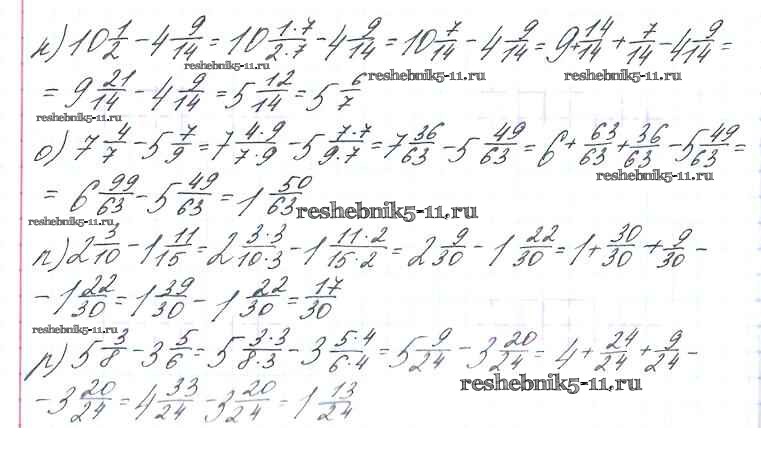 н) 10 1/2 - 4 9/14 = 10 1·7/2·7 - 4 9/14 = 10 7/14 - 4 9/14 = 9 + 14/14 + 7/14 - 4 9/14 =
reshebnik5-11.ru
= 9 21/14 - 4 9/14 = 5 12/14 = 5 6/7
reshebnik5-11.ru reshebnik5-11.ru
reshebnik5-11.ru
о) 7 4/7 - 5 7/9 = 7 4·9/7·9 - 5 7·7/9·7 = 7 36/63 - 5 49/63 = 6 + 63/63 + 36/63 - 5 49/63 =
reshebnik5-11.ru
= 6 99/63 - 5 49/63 = 1 50/63
reshebnik5-11.ru
reshebnik5-11.ru
п) 2 3/10 - 1 11/15 = 2 3·3/10·3 - 1 11·2/15·2 = 2 9/30 - 1 22/30 = 1 + 30/30 + 9/30 -
- 1 22/30 = 1 39/30 - 1 22/30 = 17/30
reshebnik5-11.ru
р) 5 3/8 - 3 5/6 = 5 3·3/8·3 - 3 5·4/6·4 = 5 9/24 - 3 20/24 = 4 + 24/24 + 9/24 -
reshebnik5-11.ru
- 3 20/24 = 4 33/24 - 3 20/24 = 1 13/24